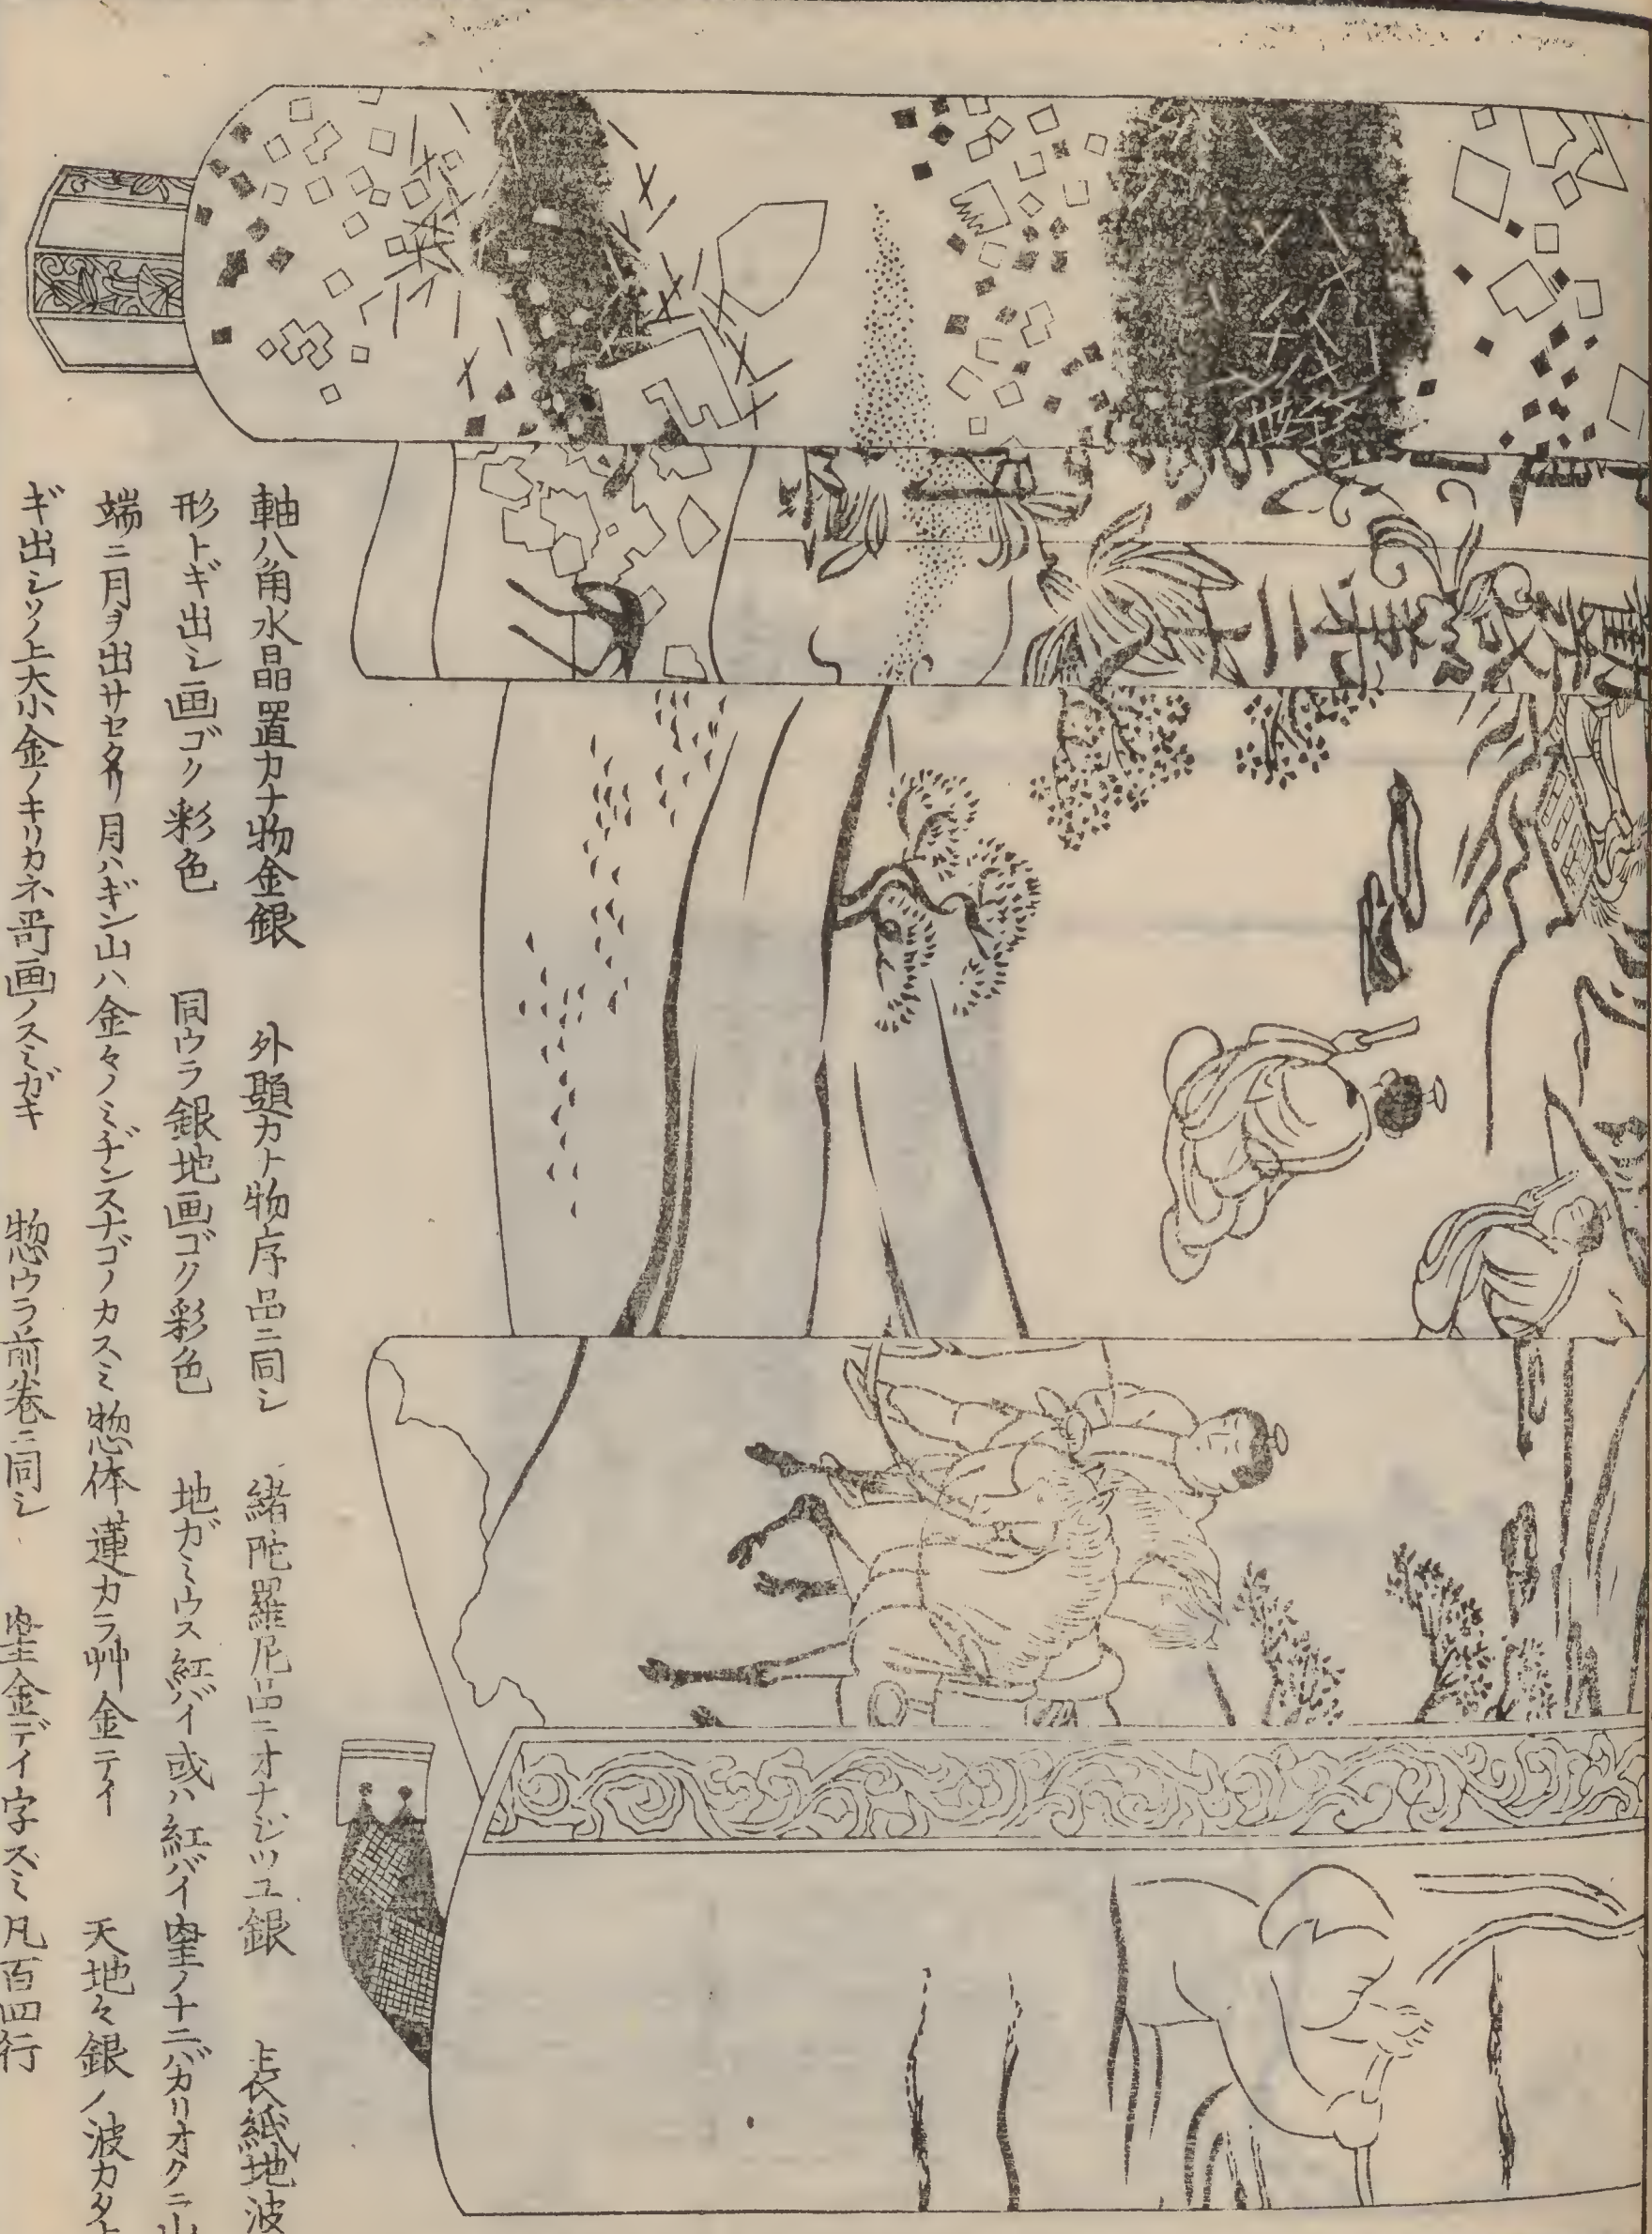 軸八角水晶置カナ物金銀　外題カナ物序品ニ同シ　緒陀羅尼品ニオナジツユ銀　表紙地波
形トギ出シ画ゴク彩色　同ウラ銀地画ゴク彩色　地ガミウス紅バイ或ハ紅バイ内ノ十二バカリオクニ山
端ニ月ヲ出サセタリ月ハギン山ハ金々ノミヂンスナゴノカスミ惣体蓮カラ艸金テイ　天地々銀ノ波カタ
ギ出シソノ上大小金ノキリカネ哥画ノスミガキ　惣ウラ前巻ニ同シ　金デイ字スミ凡百四行